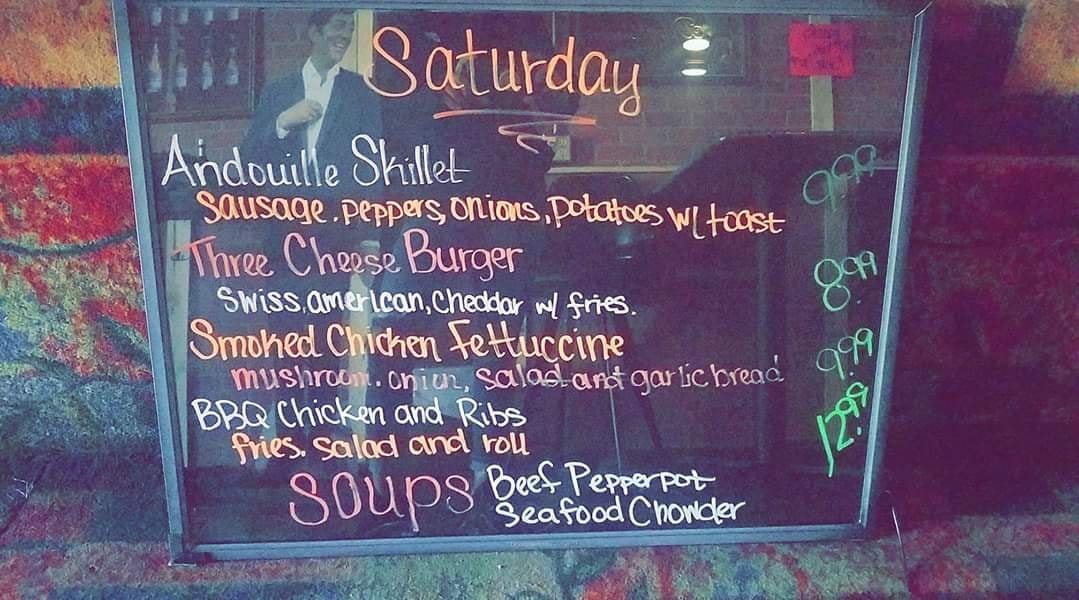 Saturday
Andouille Skillet 9.99
Sausage, peppers, onions, potatoes w/ toast
Three Cheese Burger 8.99
Swiss, american, cheddar w/ fries.
Smoked Chicken Fettuccine 9.99
mushroom, onion, salad and garlic bread
BBQ Chicken and Ribs 12.99
fries, salad and roll
SOUPS Beef Pepperpot
Seafood Chowder